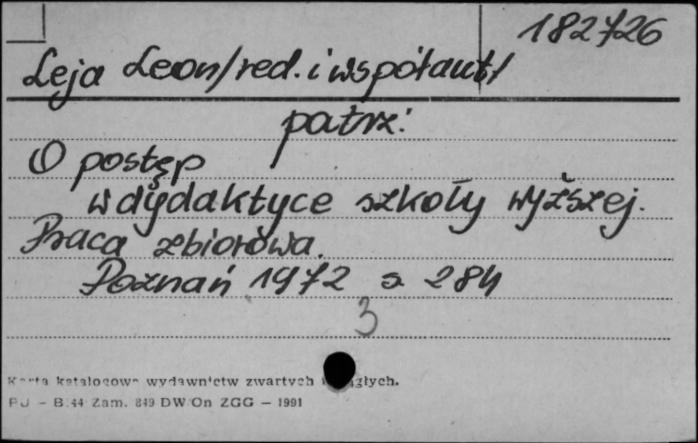 182726
Leja Leon/red. i współaut/
patrz:
O postęp
w dydaktyce szkoły wyższej.
Praca zbiorowa.
Poznań 1972 s 284
3
Karta katalogowa wydawnictw zwartych i ciągłych.
PU – B.44 Zam. 849 DW On ZGG – 1991